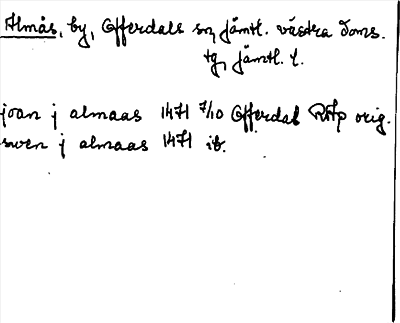 Almås, by, Offerdals sn, Jämtl. västra doms.
tg, Jämtl. l.
joan j almaas 1471 7/10 Offerdal RAp orig.
swen j almaas 1471 ib.